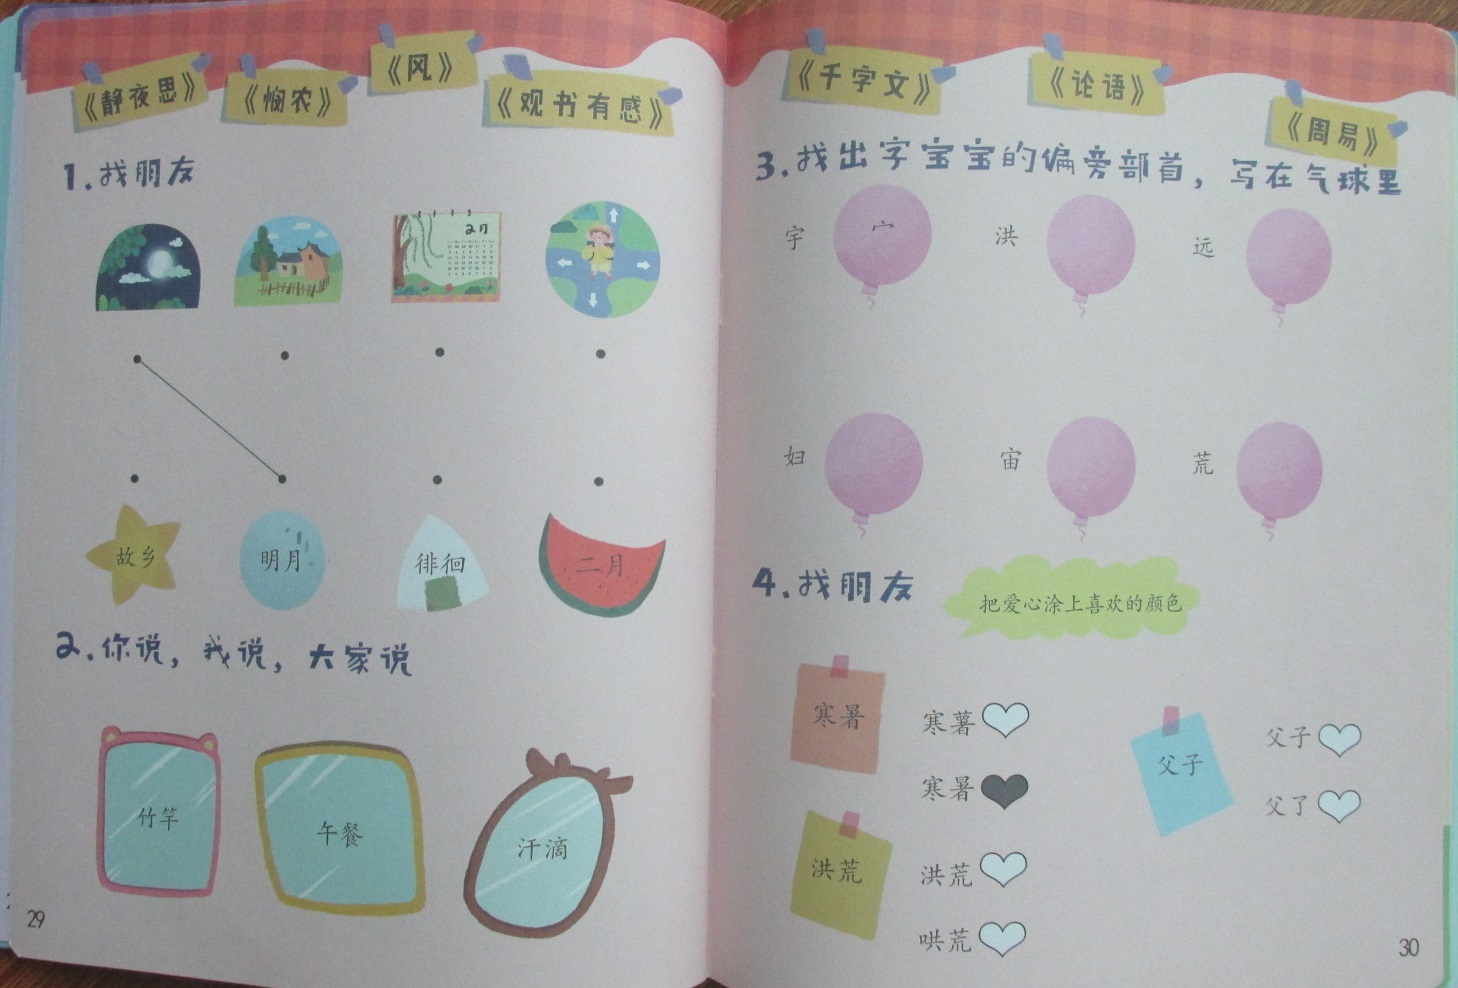 《静夜思》
《悯农》
《风》
《观书有感》
1.找朋友
2月
故乡
明月
徘徊
二月
2.你说，我说，大家说
竹竿
午餐
汗滴
29
《千字文》
《论语》
《周易》
3.找出字宝宝的偏旁部首，写在气球里
宇
宀
洪
远
妇
宙
荒
4.找朋友
把爱心涂上喜欢的颜色
寒暑
寒薯
寒暑
父子
父子
父了
洪荒
洪荒
哄荒
30